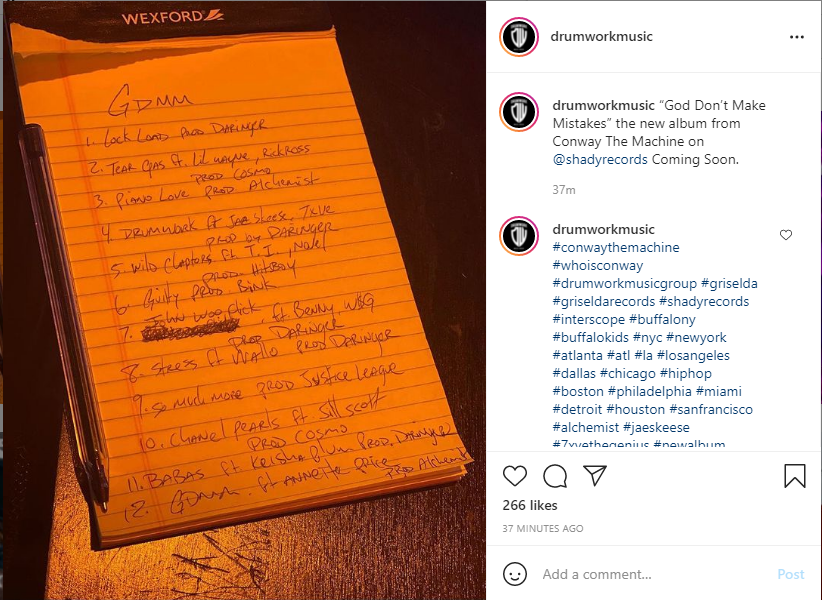 WEXFORD
GDMM
1. Lock Load prod Daringer
2. Tear Gas ft. Lil Wayne, Rick Ross
prod Cosmo
3. Piano Love prod Alchemist
4. Drumwork ft Jae Skeese, 7xve
prod by Daringer
5. Wild Chapters ft T.I., Novel
prod. Hitboy
6. Guilty prod Bink
John Woo Flick
7. , ft Benny, WSG
prod Daringer
8. Stress ft Wallo prod Daringer
9. So Much More prod Justice League
10. Chanel Pearls ft Jill Scott
prod Cosmo
11. Babas ft Keisha Plum prod. Daringer
12. GDMM. ft Annette Price
prod Alchemist
drumworkmusic
drumworkmusic “God Don’t Make
Mistakes” the new album from
Conway The Machine on
@shadyrecords Coming Soon.
37m
drumworkmusic
#conwaythemachine
#whoisconway
#drumworkmusicgroup #griselda
#griseldarecords #shadyrecords
#interscope #buffalony
#buffalokids #nyc #newyork
#atlanta #atl #la #losangeles
#dallas #chicago #hiphop
#boston #philadelphia #miami
#detroit #houston #sanfrancisco
#alchemist #jaeskeese
#7xvethegenius #newalbum
266 likes
37 MINUTES AGO
Add a comment...
Post